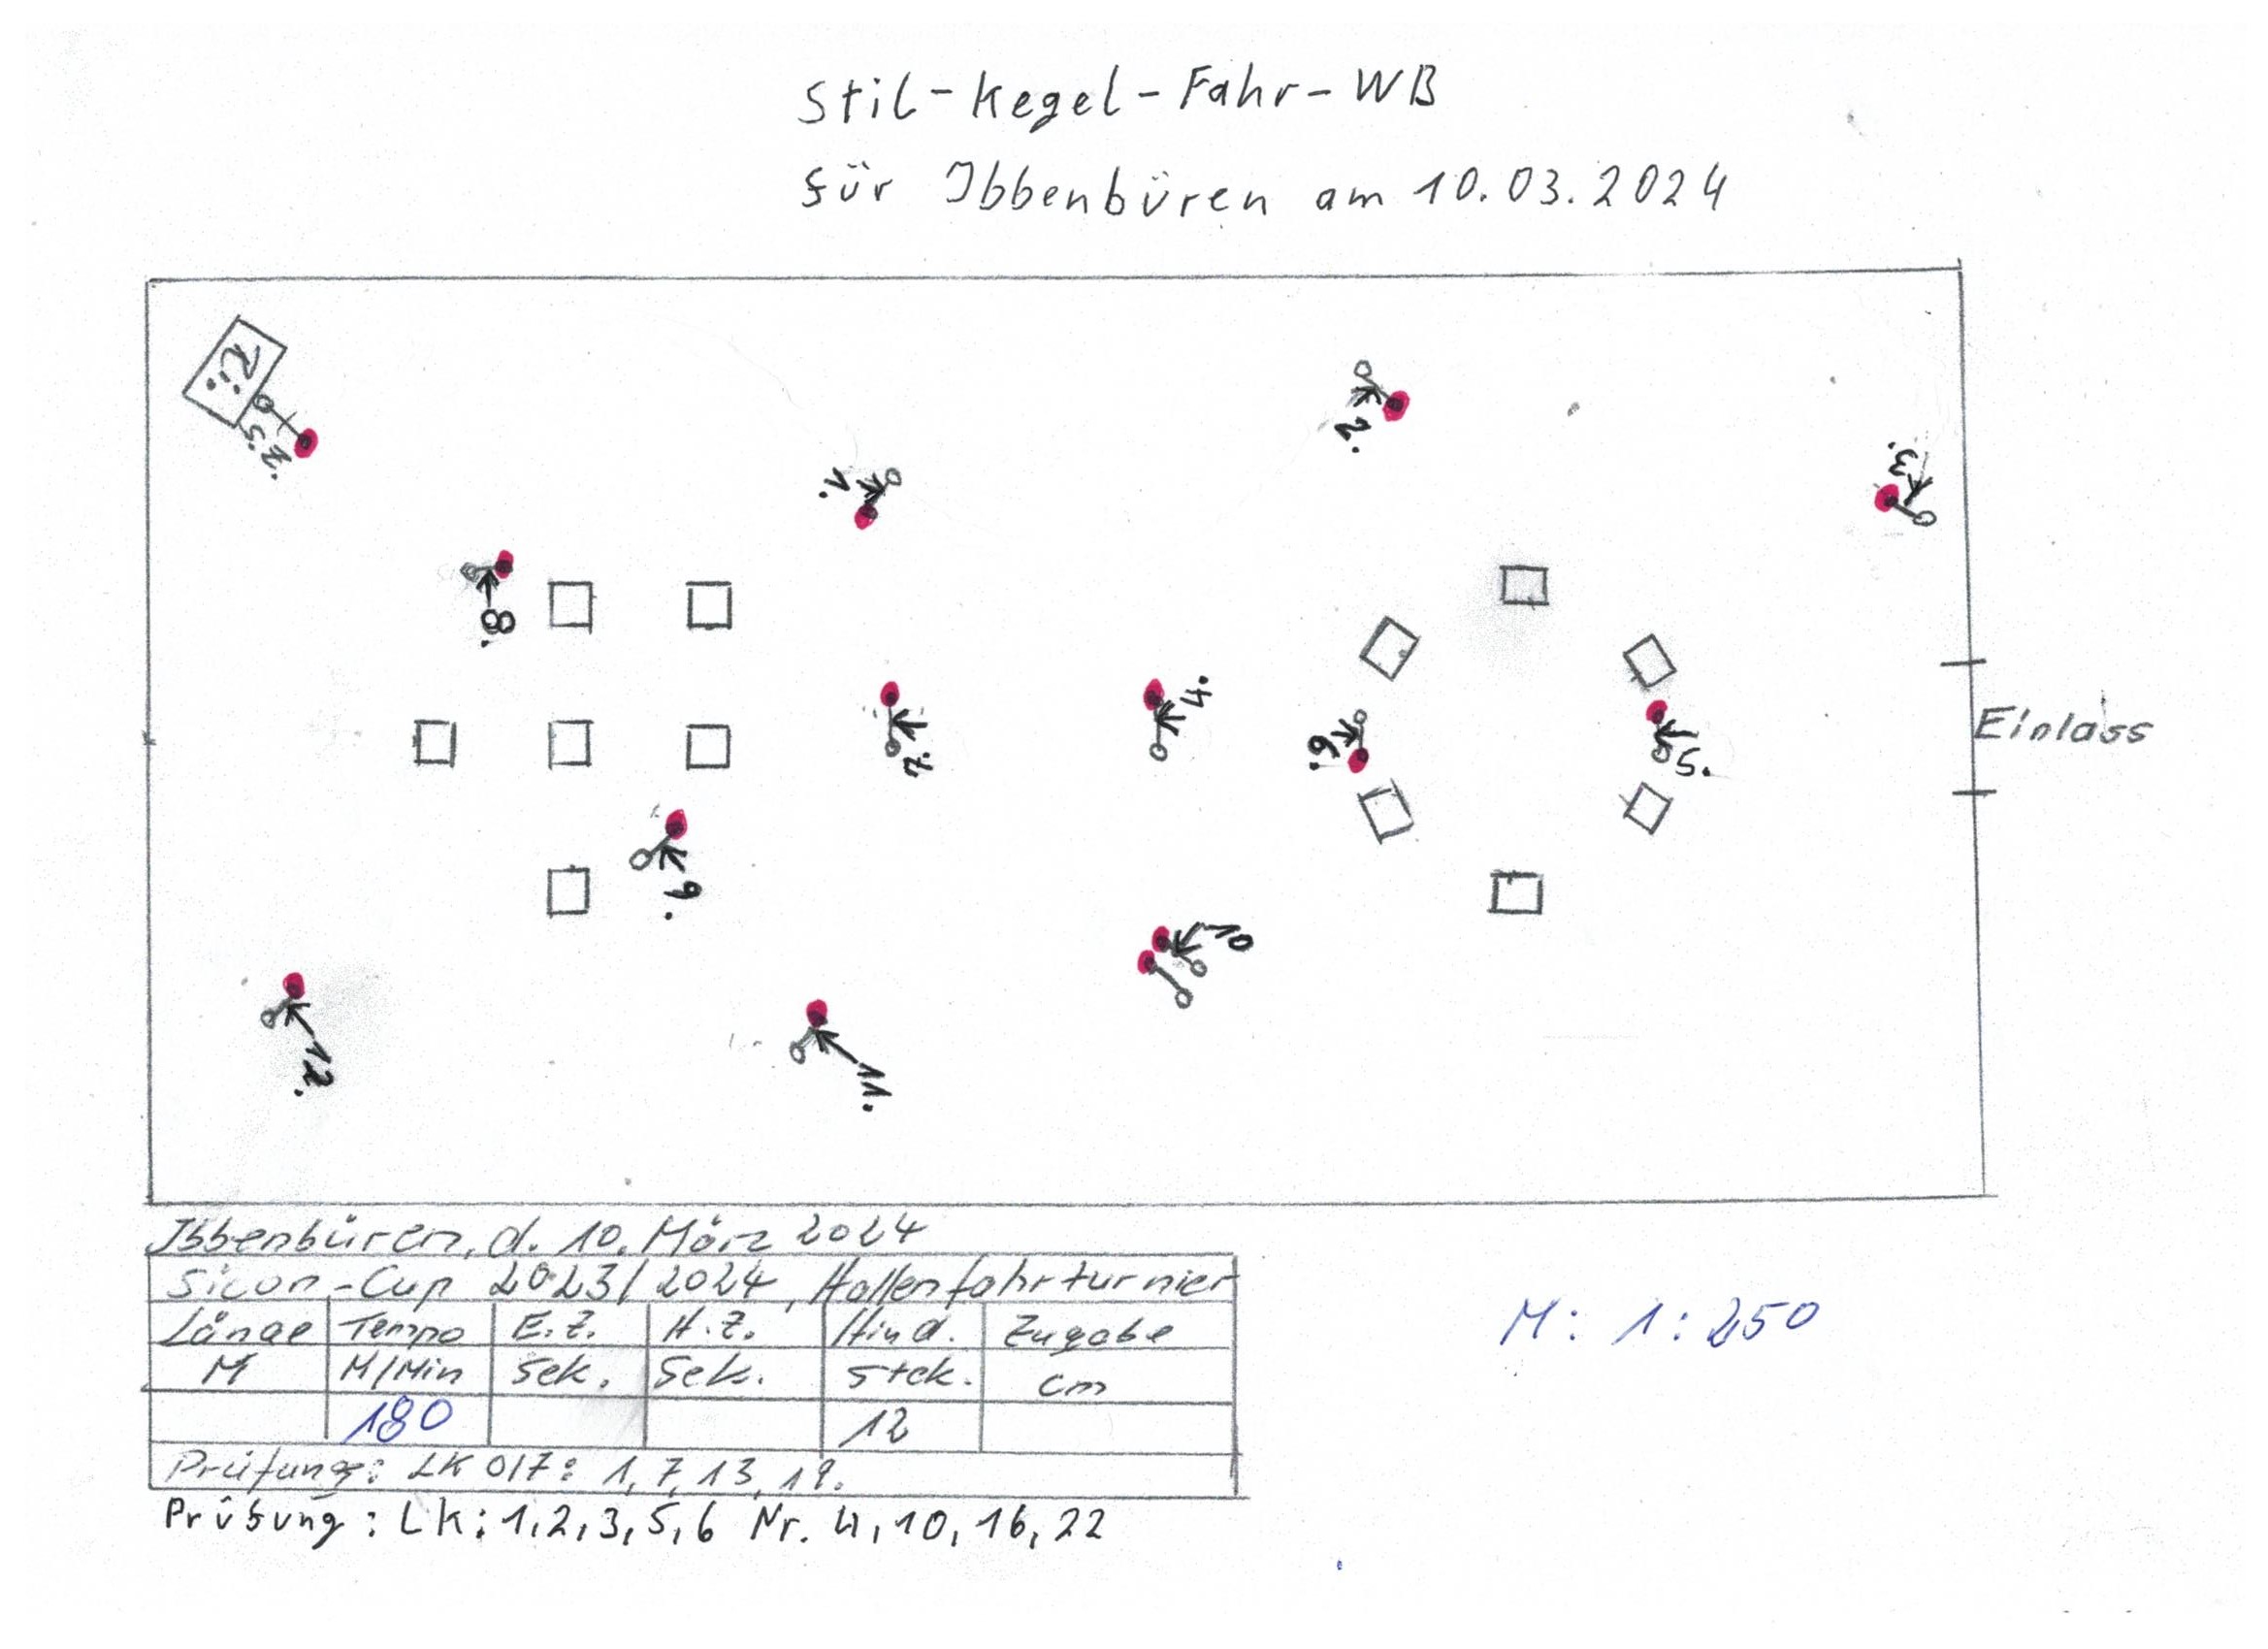 Stil-Kegel-Fahr-WB
für Ibbenbüren am 10.03.2024
Ri.
Z.S.
1.
2.
3.
8.
7.
4.
6.
5.
Einlass
9.
10
12.
11.
Ibbenbüren, d. 10. März 2024
Sicon-Cup 2023/2024, Hallenfahrturnier
Länge Tempo E.Z. H.Z. Hind. Zugabe
M M/Min Sek. Sek. Stck. cm
180 12
M: 1:250
Prüfung: LK 0/7: 1, 7, 13, 19.
Prüfung: LK: 1,2,3,5,6 Nr. 4, 10, 16, 22